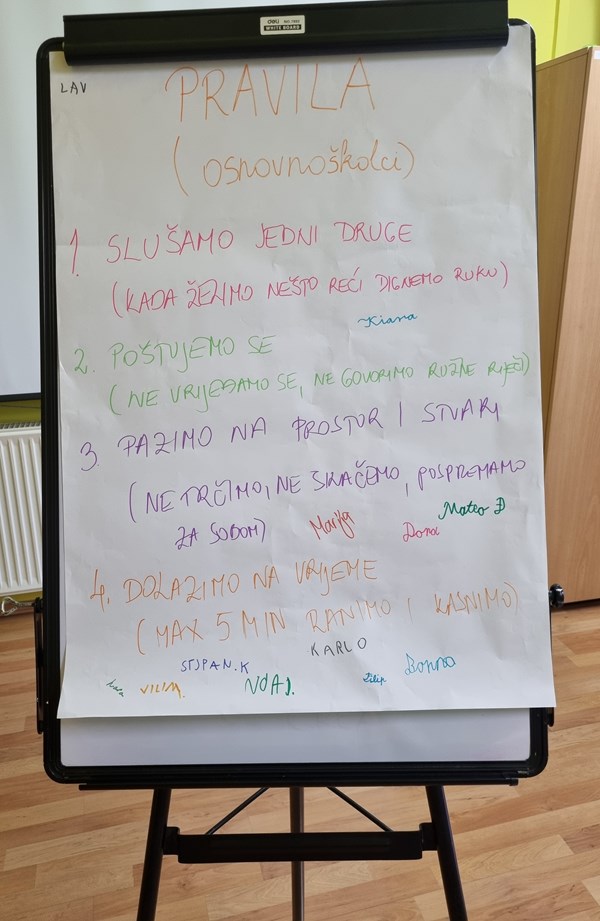 deli
WHITE BOARD
LAV
PRAVILA
(osnovnoškolci)
1. SLUŠAMO JEDNI DRUGE
(KADA ŽELIMO NEŠTO REĆI DIGNEMO RUKU)
Kiana
2. POŠTUJEMO SE
(NE VRIJEĐAMO SE, NE GOVORIMO RUŽNE RIJEČI)
3. PAZIMO NA PROSTOR I STVARI
(NE TRČIMO, NE SKAČEMO, POSPREMAMO
ZA SOBOM)
Marija
Dona
Mateo Đ
4. DOLAZIMO NA VRIJEME
(MAX 5 MIN RANIMO I KASNIMO)
KARLO
STJPAN.K
VILIM.
NOA J.
Filip
Donna